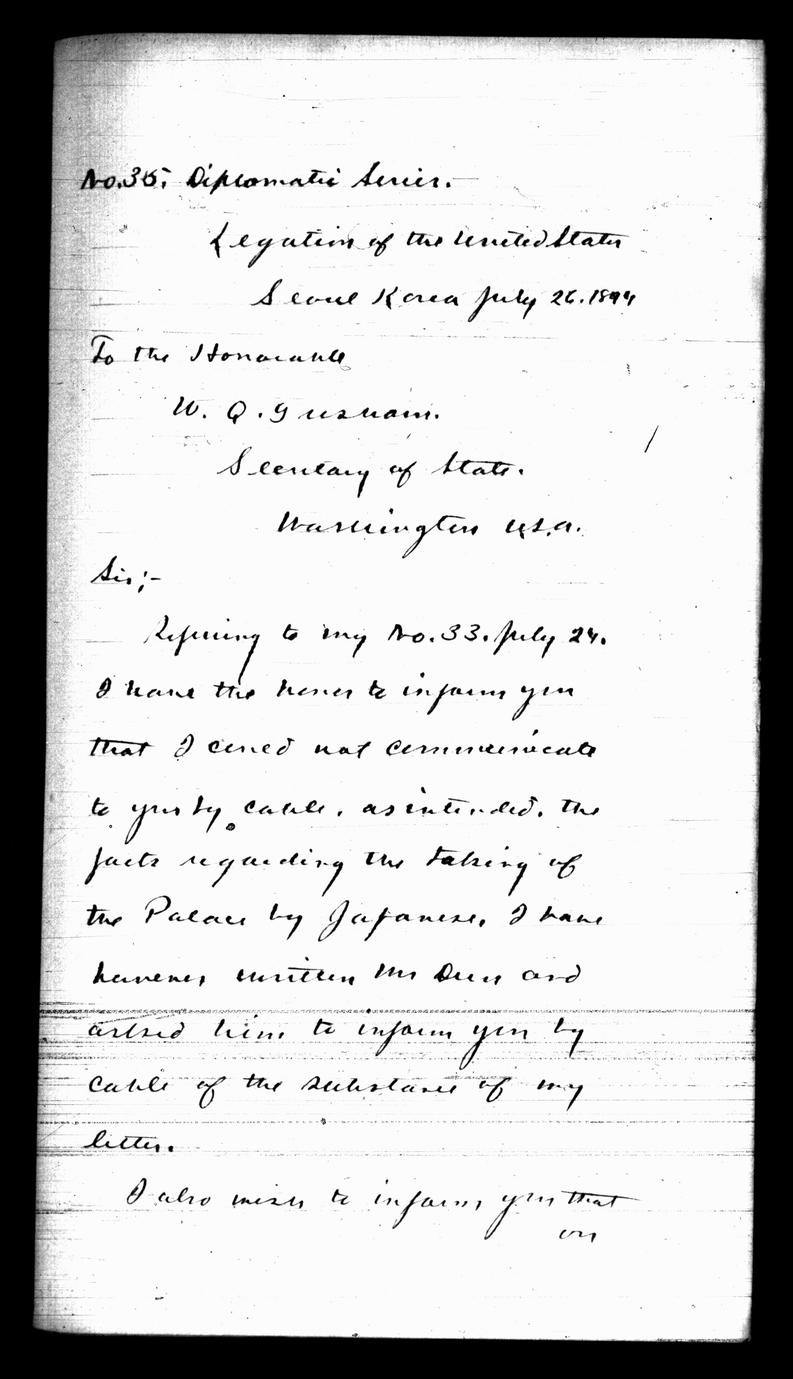 No. 35, Diplomatic Series.
Legation of the United States
Seoul Korea July 26. 1894
To the Honorable
W. Q. Gresham.
Secretary of State.
Washington U.S.A.
Sir;-
Refering to my No. 33. July 24.
I have the honor to inform you
that I could not communicate
to you by cable, as intended, the
facts regarding the taking of
the Palace by Japanese. I have
however written Mr Dun and
asked him to inform you by
cable of the substance of my
letter.
I also wish to inform you that
on